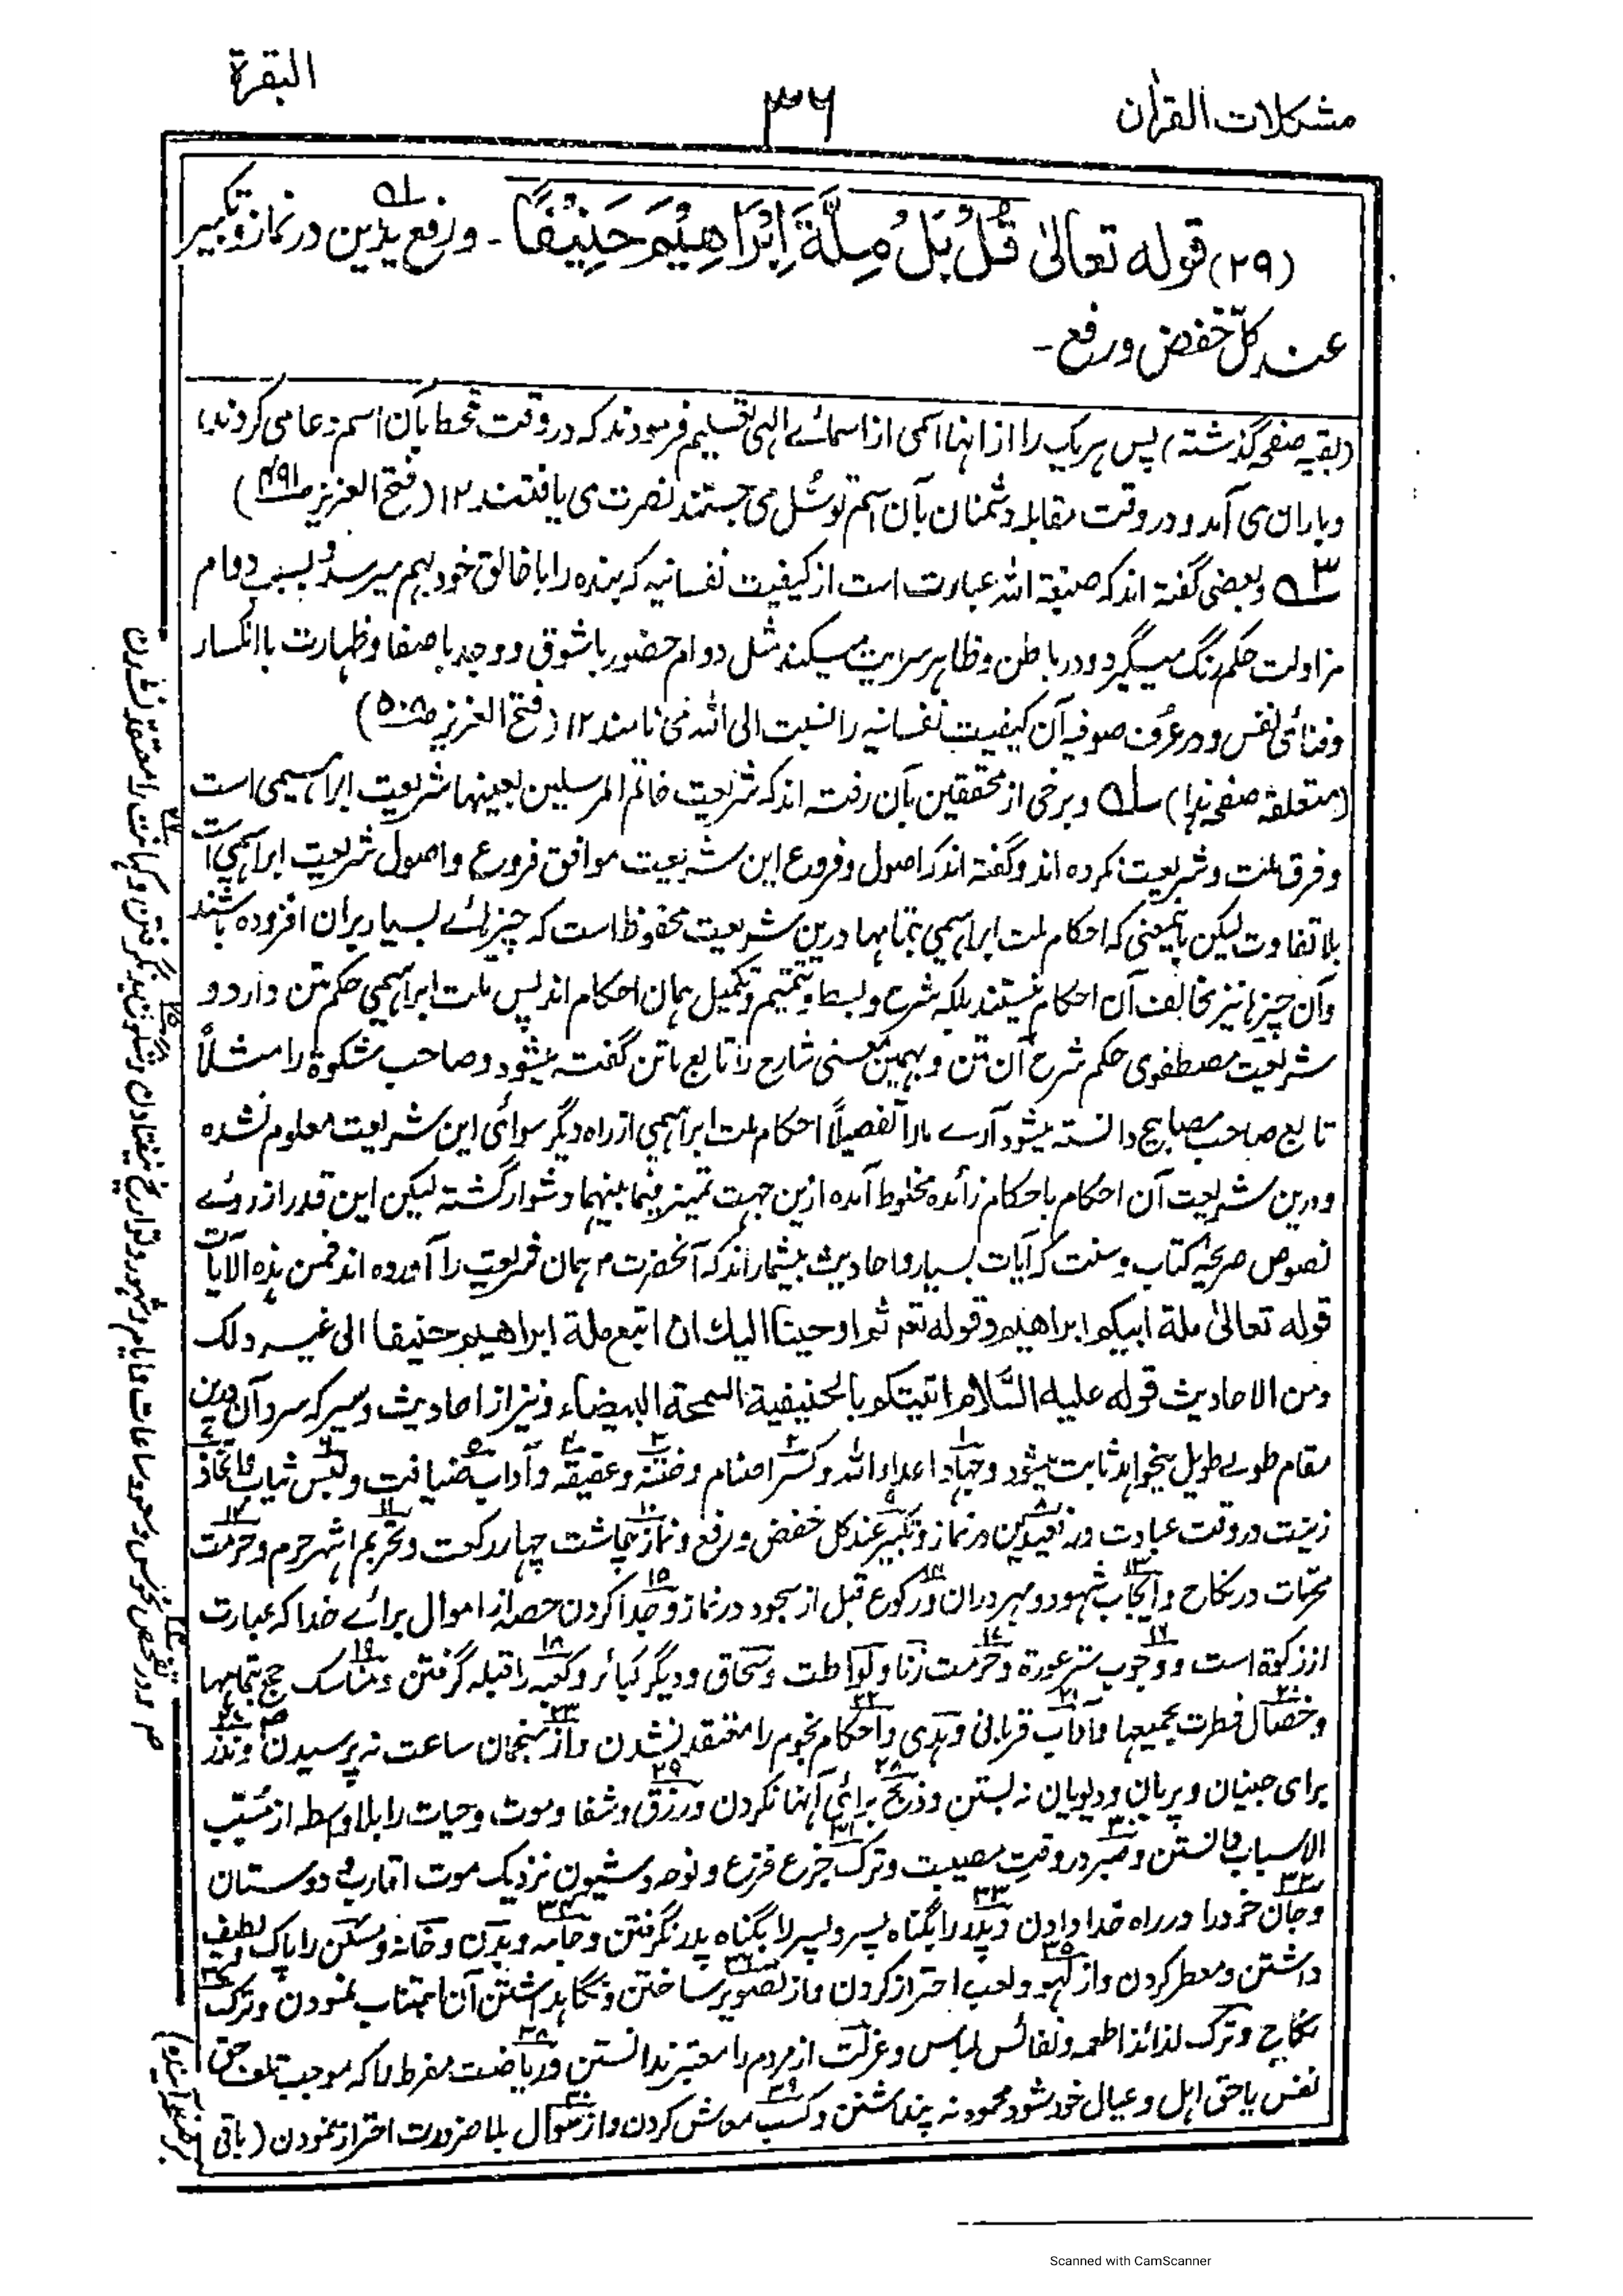 البقرة
۳۶
مشکلات القرآن
(۲۹) قوله تعالیٰ قُلْ بَلْ مِلَّةَ اِبْرَاهِيْمَ حَنِيْفًا ۔ ورفع یدین در نماز وتکبیر
عند کلّ خفض ورفع ۔
(بقیه صفحه گذشته) پس هر یک را از انها اسمی از اسمائے الٰهی تعلیم فرمودند که در وقت قحط بآن اسم دعا می کردند
وباران می آمد و در وقت مقابله دشمنان بآن اسم توسّل می جستند نصرت می یافتند ۱۲ (فتح العزیز ص۴۹۱)
۳ه وبعضی گفته اند که صبغة الله عبارت است از کیفیت نفسانیه که بنده را با خالق خود بهم میرسد و بسبب دوام
مزاولت حکم رنگ میگیرد و در باطن وظاهر سرایت میکند مثل دوام حضور با شوق ووجد با صفا وطهارت با انکسار
وفنائی نفس ودر عُرف صوفیه آن کیفیت نفسانیه را نسبت الی الله می نامند ۱۲ (فتح العزیز ص۵۰۸)
(متعلقه صفحه هذا) ۱ه وبرخی از محققین بآن رفته اند که شریعت خاتم المرسلین بعینها شریعت ابراهیمی است
وفرق ملت وشریعت نکرده اند وگفته اند که اصول وفروع این شریعت موافق فروع واصول شریعت ابراهیمی است
بلا تفاوت لیکن بایمعنی که احکام ملت ابراهیمی بتمامها درین شریعت محفوظ است که چیزهائے بسیار بران افزوده باشند
وآن چیزها نیز مخالف آن احکام نیستند بلکه شرح وبسط وتتمیم وتکمیل همان احکام اند پس ملت ابراهیمی حکم متن دارد و
شریعت مصطفوی حکم شرح آن متن وبهمین معنی شارح را تابع ماتن گفته میشود وصاحب مشکوة را مثلاً
تابع صاحب مصابیح دانسته میشود آرے مارا تفصیلاً احکام ملت ابراهیمی از راه دیگر سوائی این شریعت معلوم نشده
ودرین شریعت آن احکام باحکام زائده مخلوط آمده ازین جهت تمییز فیما بینهما دشوار گشته لیکن این قدر از روئے
نصوص صریحه کتاب وسنت که آیات بسیار واحادیث بیشمار اند که آنحضرت م همان شریعت را آورده اند فمن هذه الآیات
قوله تعالیٰ ملة ابیکم ابراهیم وقوله تعم ثم اوحینا الیك ان اتبع ملة ابراهیم حنیفا الی غیر ذلک
ومن الاحادیث قوله علیه السّلام اتیتکم بالحنیفیة السمحة البیضاء ونیز از احادیث وسیر که سرد آن درین
مقام طولے طویل میخواهد ثابت میشود وجهاد اعداء الله وکسر اصنام وختنه وعقیقه وآداب ضیافت ولبس ثیاب واتخاذ
زینت در وقت عبادت ورفع یدین در نماز وتکبیر عند کل خفض ورفع ونماز چاشت چهار رکعت وتحریم اشهر حرم وحرمت
محرمات در نکاح وایجاب شهود ومهر دران ورکوع قبل از سجود در نماز وجدا کردن حصه از اموال برائے خدا که عبارت
از زکوة است ووجوب ستر عورة وحرمت زنا ولواطت وسحاق ودیگر کبائر وکعبه را قبله گرفتن ومناسک حج بتمامها
وخصال فطرت بجمیعها وآداب قربانی وهدی واحکام نجوم را معتقد نشدن واز منجمان ساعت نه پرسیدن ونذر
برای جنیان وپریان ودیویان نه بستن وذبح برائی آنها نکردن ورزق وشفا وموت وحیات را بلا واسطه از مسبّب
الاسباب دانستن وصبر در وقت مصیبت وترک جزع فزع ونوحه وشیون نزدیک موت اقارب ودوستان
وجان خود را در راه خدا دادن وپدر را بگناه پسر وپسر را بگناه پدر نگرفتن وجامه وبدن وخانه ومسکن را پاک لطیف
داشتن ومعطر کردن واز لهو ولعب احتراز کردن واز تصویر ساختن ونگاهداشتن آن اجتناب نمودن وترک
نکاح وترک لذائذ اطعمه ونفائس لباس وعزلت از مردم را معتبر ندانستن وریاضت مفرط را که موجب تلف حق
نفس یا حق اهل وعیال خود شود محمود نه پنداشتن وکسب معاش کردن واز سوال بلا ضرورت احتراز نمودن (باقی
بر صفحه آینده)
تفحص نحوس وسعود ساعات وایام وشهور وتواریخ نیفتادن وشگون بد نگرفتن وکهانت را معتقد نشدن
Scanned with CamScanner